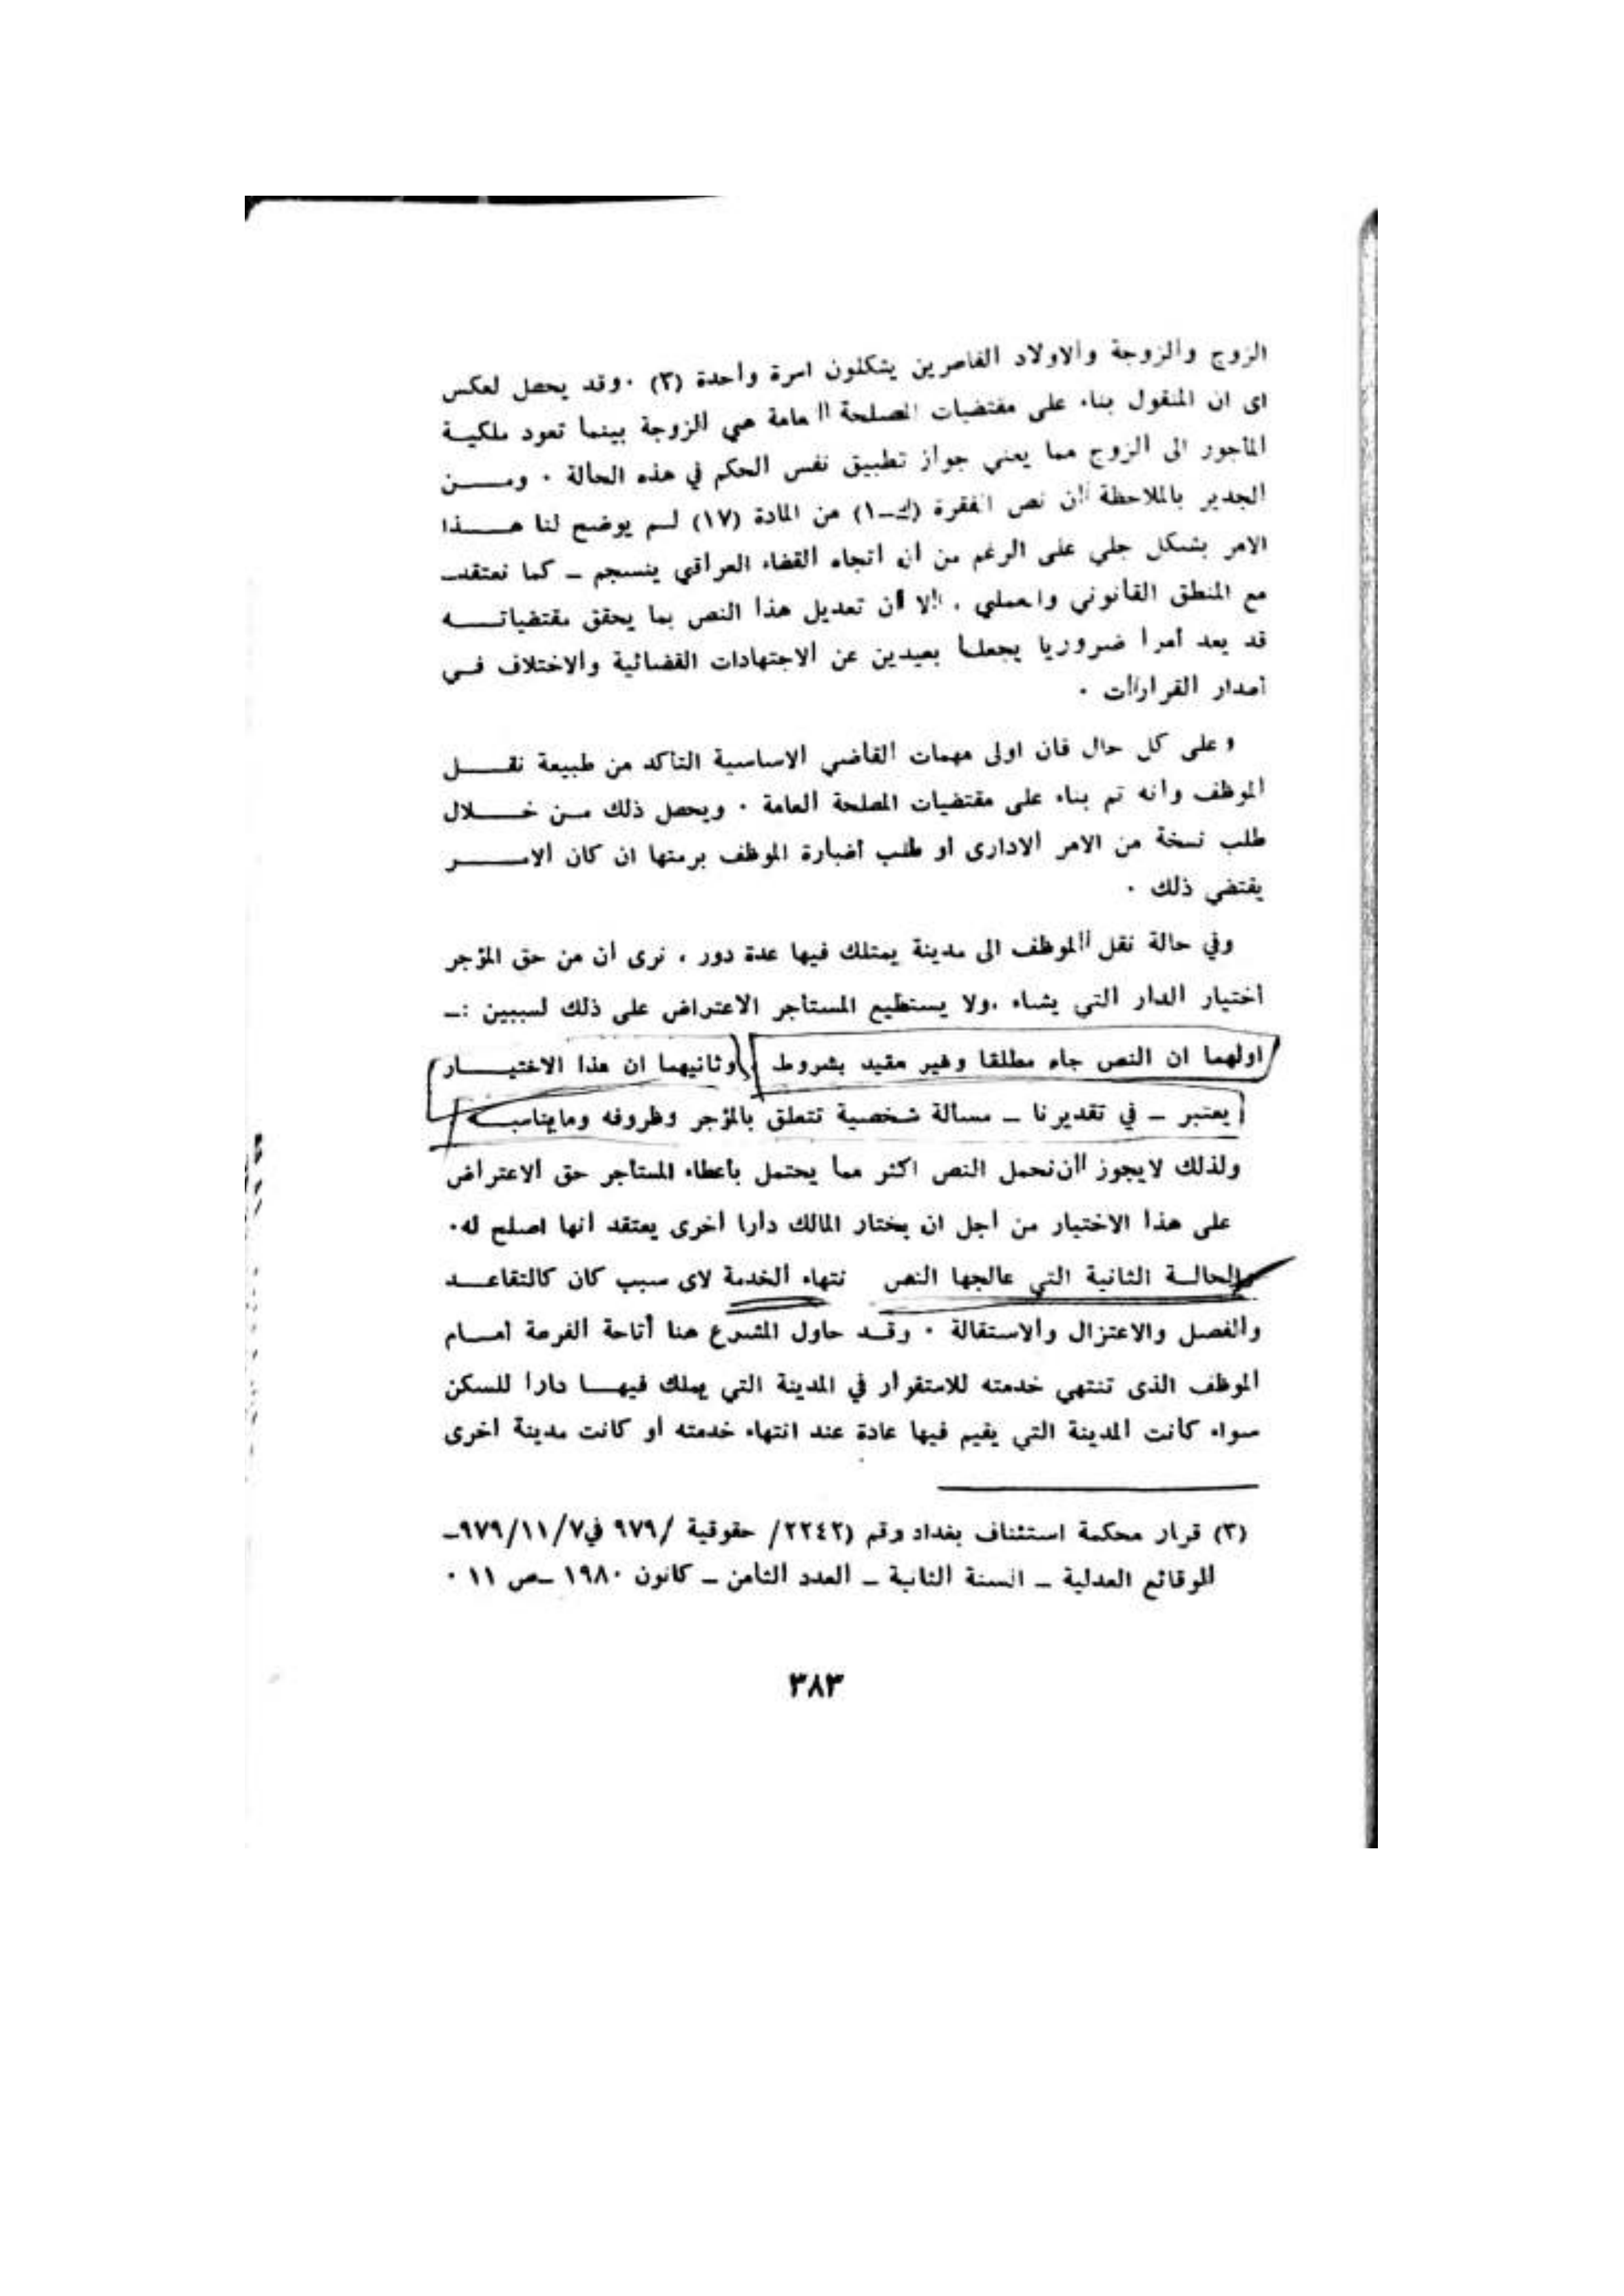 الزوج والزوجة والاولاد القاصرين يشكلون اسرة واحدة (٣) ٠وقد يحصل لعكس
اى ان المنقول بناء على مقتضيات المصلحة العامة هي الزوجة بينما تعود ملكيــة
المأجور الى الزوج مما يعني جواز تطبيق نفس الحكم في هذه الحالة ٠ ومـــــن
الجدير بالملاحظة أن نص الفقرة (ك-١) من المادة (١٧) لـم يوضح لنا هــــذا
الامر بشكل جلي على الرغم من ان اتجاه القضاء العراقي ينسجم ـ كما نعتقدـ
مع المنطق القانوني والعملي ، الا أن تعديل هذا النص بما يحقق مقتضياتــــه
قد يعد أمرا ضروريا يجعلنا بعيدين عن الاجتهادات القضائية والاختلاف فــي
أصدار القرارات ٠
وعلى كل حال فان اولى مهمات القاضي الاساسية التأكد من طبيعة نقـــــل
الموظف وانه تم بناء على مقتضيات المصلحة العامة ٠ ويحصل ذلك مـن خـــــلال
طلب نسخة من الامر الادارى أو طلب أضبارة الموظف برمتها ان كان الامـــــــر
يقتضي ذلك ٠
وفي حالة نقل الموظف الى مدينة يمتلك فيها عدة دور ، نرى أن من حق المؤجر
أختيار الدار التي يشاء ٠ولا يستطيع المستأجر الاعتراض على ذلك لسببين :ـ
اولهما ان النص جاء مطلقا وغير مقيد بشروط وثانيهما ان هذا الاختيـــــار
يعتبر ـ في تقديرنا ـ مسألة شخصية تتعلق بالمؤجر وظروفه ومايناسبـــه
ولذلك لايجوز أن نحمل النص اكثر مما يحتمل باعطاء المستأجر حق الاعتراض
على هذا الاختيار من أجل ان يختار المالك دارا أخرى يعتقد أنها اصلح له٠
والحالــة الثانية التي عالجها النص نتهاء الخدمة لاى سبب كان كالتقاعــد
والفصل والاعتزال والاستقالة ٠ وقــد حاول المشرع هنا أتاحة الفرصة أمــام
الموظف الذى تنتهي خدمته للاستقرار في المدينة التي يملك فيهــا دارا للسكن
سواء كانت المدينة التي يقيم فيها عادة عند انتهاء خدمته أو كانت مدينة اخرى
(٣) قرار محكمة استئناف بغداد رقم (٢٢٤٢/ حقوقية /٩٧٩ في٩٧٩/١١/٧ـ
الوقائع العدلية ـ السنة الثانية ـ العدد الثامن ـ كانون ١٩٨٠ ـص ١١ ٠
٣٨٣